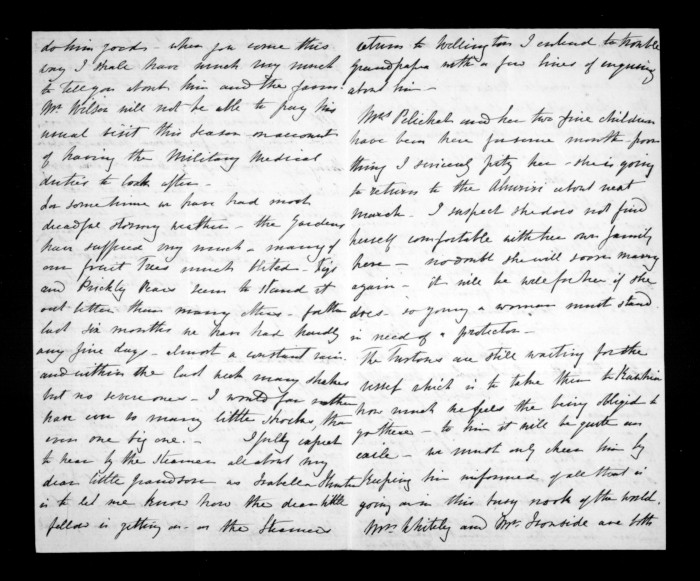 do him good - when you come this
way I shall have much very much
to tell you about him and the farm.
Mr Wilson will not be able to pay his
usual visit this season on account
of having the Military Medical
duties to look after -
For some time we have had most
dreadful stormy weather - the Gardens
have suffered very much - many of
our fruit Trees much blited - Figs
and Prickly Pears seem to stand it
out better than many others - for the
last six months we have had hardly
any fine days - almost a constant rain
and within the last week many shakes
but no severe ones - I would far rather
have ever so many little shocks, than
even one big one. - I fully expect
to hear by the Steamer all about my
dear little grandson as Isabella Hunter
is to let me know how the dear little
fellow is getting on - as the Steamer
returns to Wellington I intend to trouble
grandpapa with a few lines of inquiry
about him -
Mrs and her two fine children
have been here for some month - poor
thing I sincerely pity her - she is going
to return to the Ahuriri about next
March - I suspect she does not find
herself comfortable with her own family
here - no doubt she will soon marry
again - it will be well for her if she
does - so young a woman must stand
in need of a protector -
The Turtons are still waiting for the
vessel which is to take them to Kawhia
how much he feels the being obliged to
go there - to him it will be quite an
exile - we must only cheer him by
Keeping him informed of all that is
going on in this busy nook of the world.
Mrs Whitely and Mrs Ironside are both